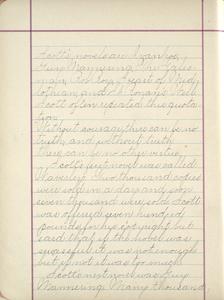 Scott's novels are Ivanhoe,
Guy Mannering, The Talis-
man, Rob Roy, Heart of Mid-
lothian, and
Scott often repeated this quota-
tion
Without courage there can be no
truth, and without truth
there can be no other virtue.
Scott's first novel was called
Waverley. Two thousand copies
were sold in a day and soon
seven thousand were sold. Scott
was offered seven hundred
pounds for his copyright but
said that if the novel was
successful it was not enough
but if not it was too much.
Scott's next novel was Guy
Mannering. Many thousand